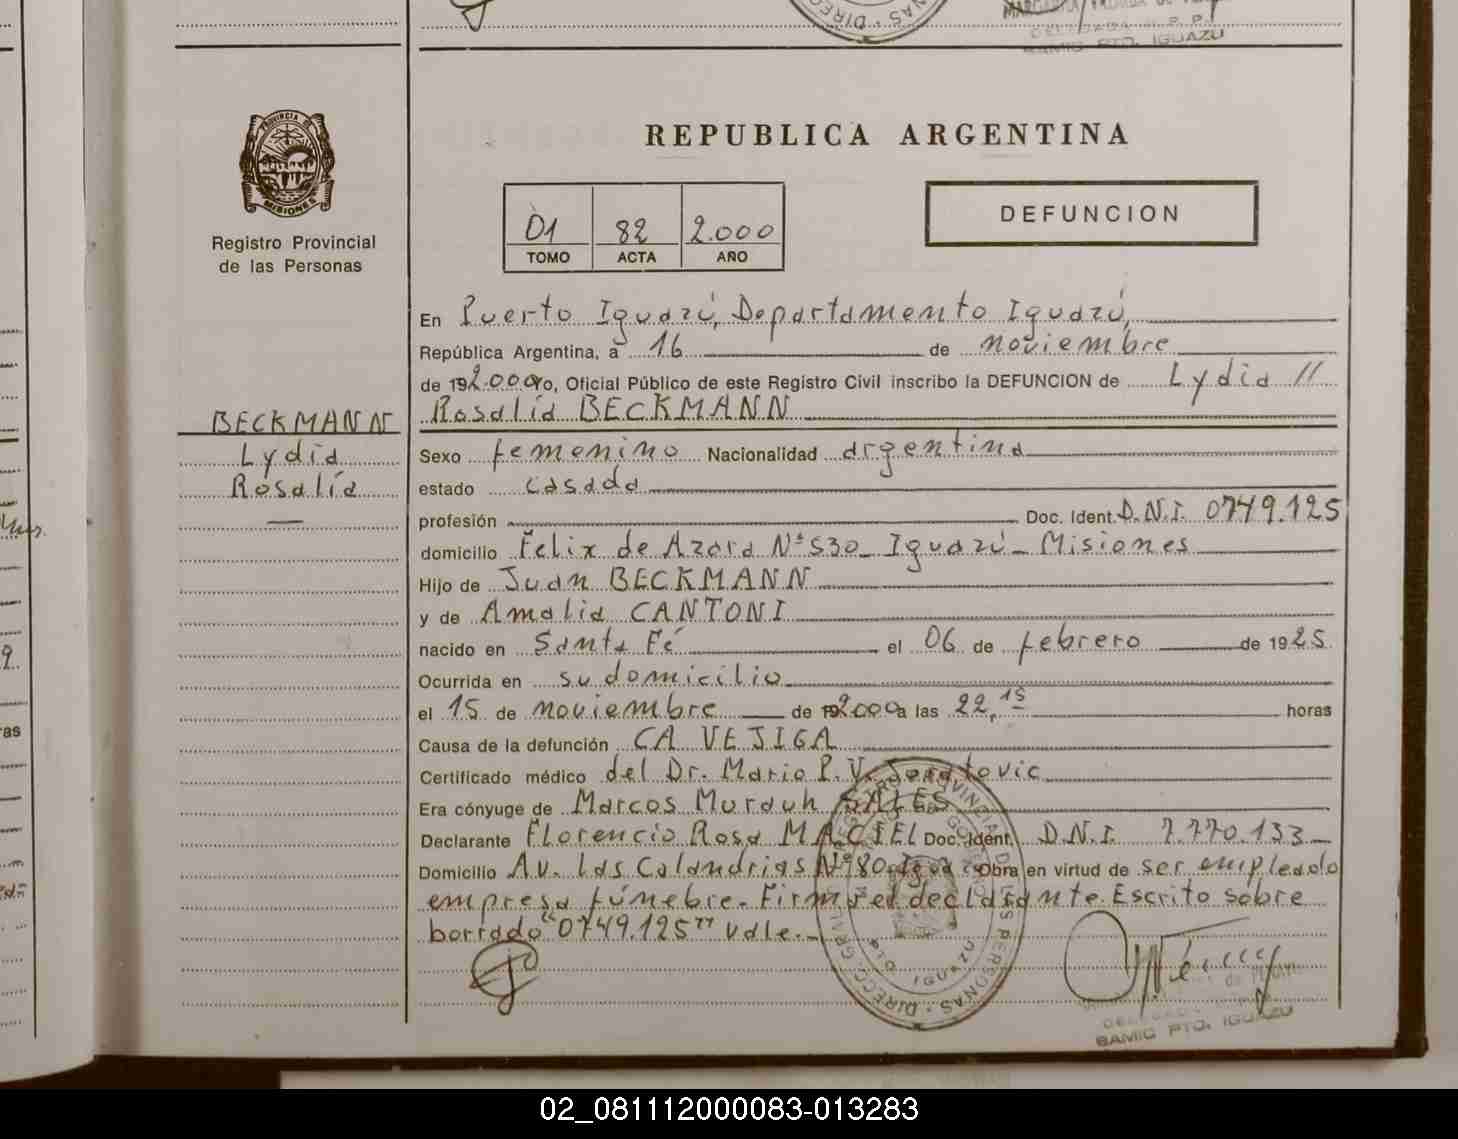 DELEGADA R.P.P.
BAMIC PTO. IGUAZU
PROVINCIA DE
MISIONES
Registro Provincial
de las Personas
REPUBLICA ARGENTINA
01 82 2.000
TOMO ACTA AÑO
DEFUNCION
En Puerto Iguazú, Departamento Iguazú,
República Argentina, a 16 de noviembre
de 192.000 yo, Oficial Público de este Registro Civil inscribo la DEFUNCION de Lydia //
Rosalía BECKMANN
BECKMANN
Lydia
Rosalía
—
Sexo femenino Nacionalidad argentina
estado casada
profesión Doc. Ident. D.N.I. 0749.125
domicilio Felix de Azara Nº 530_ Iguazú_ Misiones
Hijo de Juan BECKMANN
y de Amalia CANTONI
nacido en Santa Fé el 06 de febrero de 1925
Ocurrida en su domicilio
el 15 de noviembre de 192000 a las 22,15 horas
Causa de la defunción CA VEJIGA
Certificado médico del Dr. Mario P. V.
Era cónyuge de Marcos Murduh SALES
Declarante Florencio Rosa MACIEL Doc. Ident. D.N.I. 7.770.133_
Domicilio Av. Las Calandrias Nº 80_ Obra en virtud de ser empleado
empresa fúnebre. Firma el declarante. Escrito sobre
borrado "0749.125" vale._
PTO. IGUAZU
BAMIC PTO. IGUAZU
02_081112000083-013283